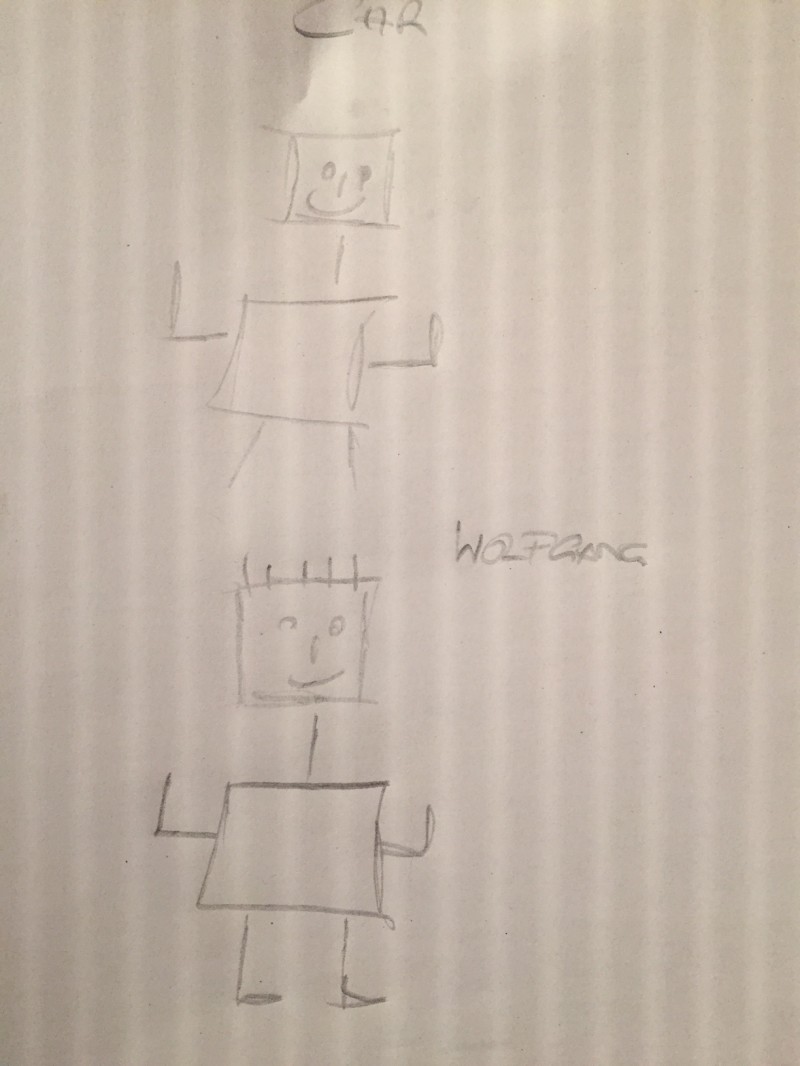 CAR
WOLFGANG